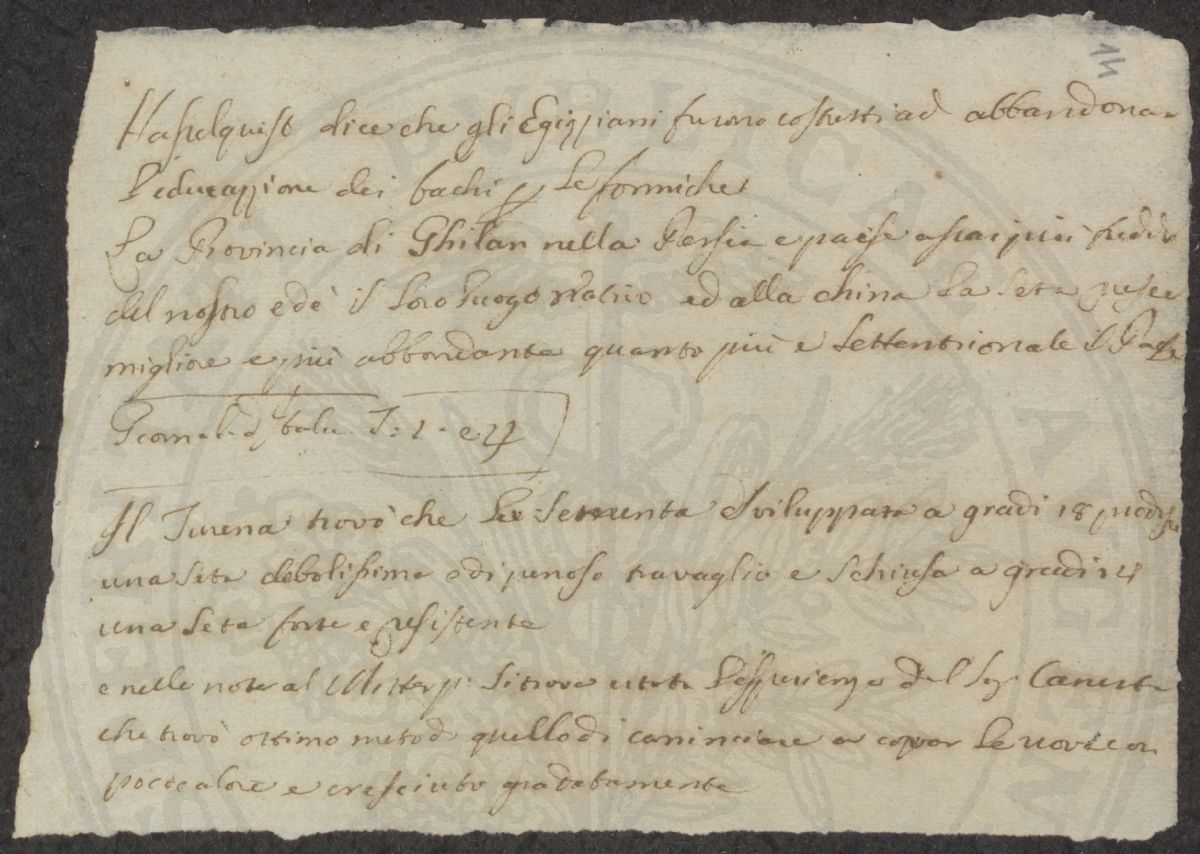 14
Haselquist dice che gli Egizziani furono costretti ad abbandonar
l'educazzione dei bachi p le formiche
La Provincia di Ghilan nella Persia e paese assai più freddo
del nostro ed è il loro luogo nativo ed alla China la seta riesce
migliore e più abbondante quanto più e settentrionale il Paese
Giornal. d Italia T: 1. e
Il Turena trovò che la sementa sviluppata a gradi 18 produsse
una seta debolissima e di penoso travaglio e schiusa a gradi
una seta forte e resistente
e nelle note al si trova l'esperienza del Sigr
che trovò ottimo metodo quello di cominciare a covar le uova con
poco calore e cresciuto gradatamente